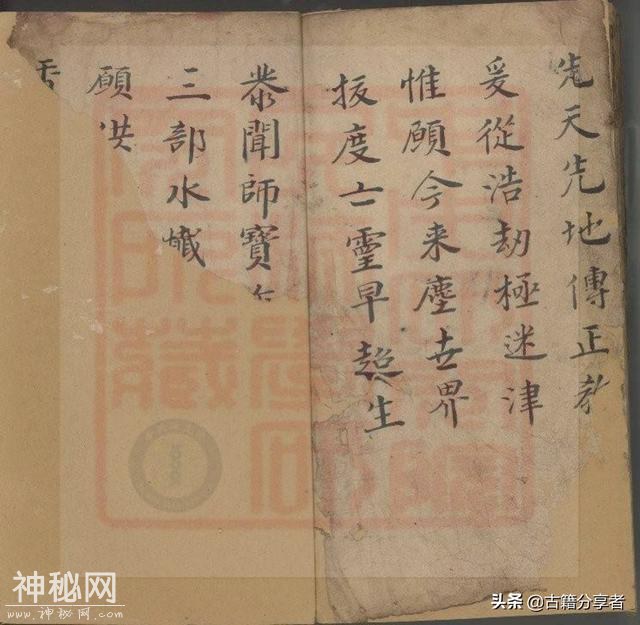 先天先地傳正教
爰從浩劫極迷津
惟願今来塵世界
拔度亡靈早超生
恭聞師寶
三部水懺
願洪
神秘网
www.神秘网.com
头条 @古籍分享者